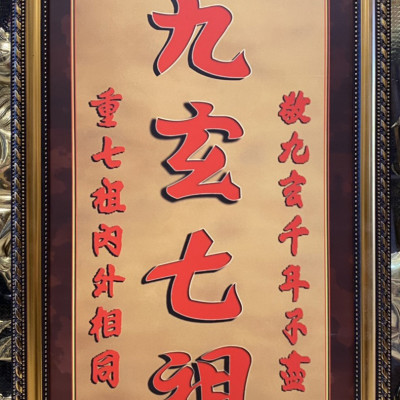 敬九玄千年不盡
九玄七祖
重七祖內外相同